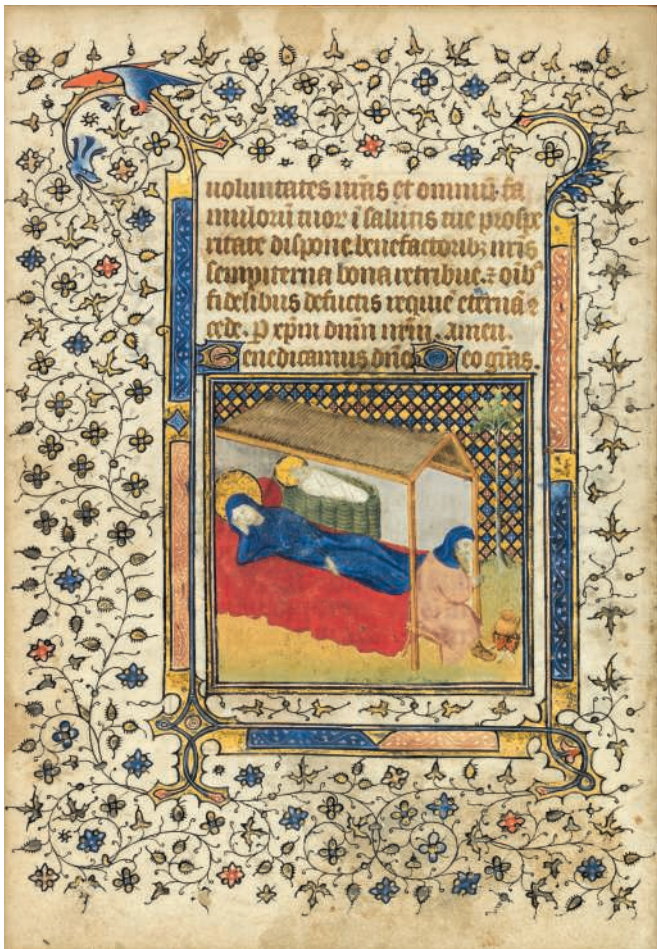 uoluntates nr̃as et omniũ fa
muloꝝ tuoꝝ ĩ salutis tue prospe
ritate dispone. benefactoribꝫ nr̃is
sempiterna bona retribue. ⁊ oĩbꝰ
fidelibus defũctis requiẽ eternã ꝯ
cede. P xp̃m dñm nr̃m. amen.
Benedicamus dño Deo gr̃as.